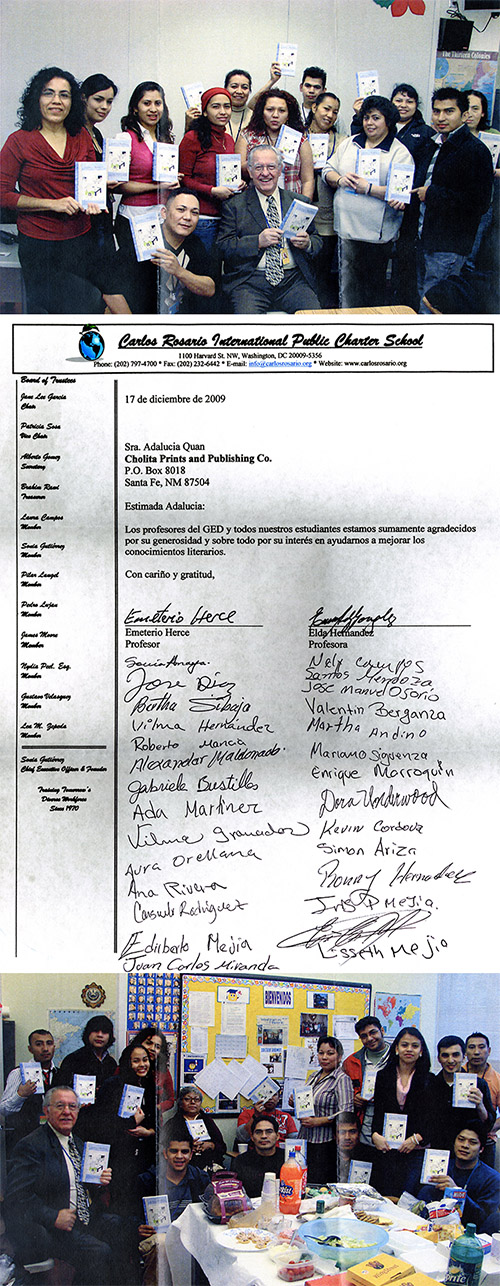 The Thirteen Colonies
Carlos Rosario International Public Charter School
1100 Harvard St. NW, Washington, DC 20009-5356
Phone: (202) 797-4700 * Fax: (202) 232-6442 * E-mail: info@carlosrosario.org * Website: www.carlosrosario.org
Board of Trustees
Jane Lee Garcia
Chair
Patricia Sosa
Vice Chair
Alberto Gomez
Secretary
Brahim Rawi
Treasurer
Laura Campos
Member
Sonia Gutiérrez
Member
Pilar Laugel
Member
Pedro Lujan
Member
James Moore
Member
Nyllia Peel, Esq.
Member
Gustavo Velasquez
Member
Lea M. Zepeda
Member
Sonia Gutiérrez
Chief Executive Officer & Founder
Training Tomorrow's
Diverse Workforce
Since 1970
17 de diciembre de 2009
Sra. Adalucia Quan
Cholita Prints and Publishing Co.
P.O. Box 8018
Santa Fe, NM 87504
Estimada Adalucia:
Los profesores del GED y todos nuestros estudiantes estamos sumamente agradecidos
por su generosidad y sobre todo por su interés en ayudarnos a mejorar los
conocimientos literarios.
Con cariño y gratitud,
Emeterio Herce
Emeterio Herce
Profesor
Elda Hernandez
Profesora
Jose Diaz
Bertha Sibaja
Vilma Hernandez
Roberto Mancia
Alexander Maldonado.
Gabriela Bustillo
Ada Martinez
Vilma Granados
Aura Orellana
Ana Rivera
Consuelo Rodriguez
Edilberto Mejia
Juan Carlos Miranda
Nely Campos
Santos Mendoza
Jose Manuel Osorio
Valentin Berganza
Martha Andino
Mariano Siguenza
Enrique Morroquin
Dora Underwood
Kevin Cordova
Simon Ariza
Ronny Hernandez
Iris P Mejia.
Lisseth Mejio
BIENVENIDOS